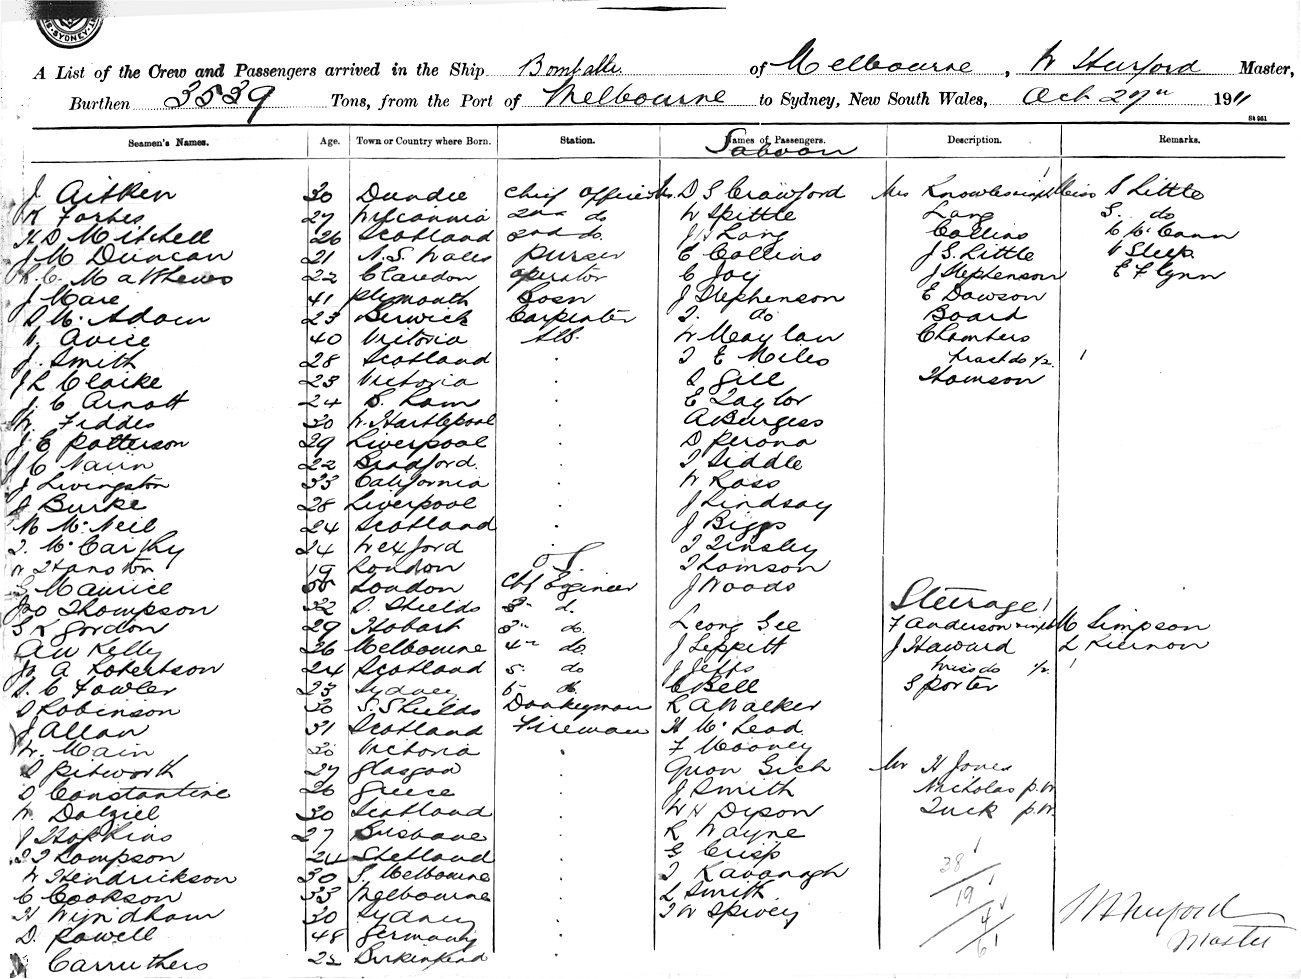 SYDNEY
A List of the Crew and Passengers arrived in the Ship Bombala of Melbourne, W Hurford Master,
Burthen 3539 Tons, from the Port of Melbourne to Sydney, New South Wales, Oct 29th 1911
St 961
Seamen's Names. Age. Town or Country where Born. Station. Names of Passengers. Description. Remarks.
Saloon
J Aitken 30 Dundee Chief Officer D S Crawford Mrs Knowles Miss S Little
Forbes 27 Wilcannia 2nd do W Spittle Lang S. do
H D Mitchell 26 Scotland 2nd do. Lang Collins C McCann
J M Duncan 21 N. S. Wales Purser E Collins J. S. Little Sleep
C Matthews 22 Claredon operator C Joy J Stephenson E Flynn
J Mare 41 Plymouth Bosn J Stephenson E Dawson
D McAdam 23 Berwick Carpenter do Board
W Avice 40 Vitoria AB. W Maylan Chambers
J. Smith 28 Scotland . T E Miles do 1/2 1
J R Clarke 23 Victoria . D Gill Thomson
J. C Arnott 24 . E Taylor
W. Fiddes 30 W. Hartlepool . A Burgess
J E Patterson 29 Liverpool . D Perona
J C Nairn 22 Bradford. . T Siddle
J Livingston 33 California . W Ross
Burke 28 Liverpool . J Lindsay
M McNeil 24 Scotland . J Biggs
T. McCarthy 24 Wexford . T Tinsley
W Hanston 19 London O.S. Thomson
G Maurice London Chf Engineer J Woods
Jno Thompson 32 S. Shields d. Steerage 1
G R Gordon 29 Hobart 3rd do. Leong See F Anderson M Simpson
A W Kelly 26 Melbourne 4th do. J Leppitt J Haward L Kiernon
A Robertson 24 Scotland 5. do J Jeffs Miss do 1/2 1
D. C Fowler 23 Sydney C Bell S Porter
D Robinson 30 S. Shields Donkeyman R A Walker
J Allan 31 Scotland Fireman H McLeod
W. Main Victoria . F Mooney
D Pitworth 27 Glasgow . Quon Sich Mr H Jones
D Constantine 26 Greece . J Smith Nicholas p.w.
W. Dalziel 30 Scotland . W H Dyson Tuck p.w.
J Hopkins 27 Brisbane . R Wayne
T Thompson 24 Shetland . G Crisp
W Hendrickson 30 S. Melbourne . T Kavanagh 38
C Cookson 33 Melbourne . L Smith 19 1
H Wyndham 30 Sydney . T W Spivey 4
D. Powell 48 Germany . 61 Hurford
Master
Carruthers Birkinhead .